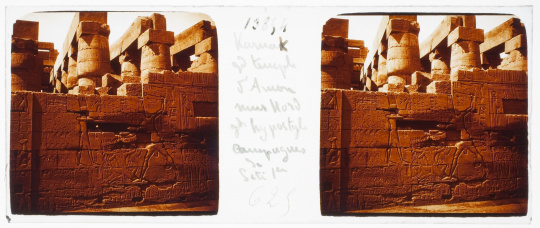 Karnak
gd temple
d'Amon
mur Nord
gd hypostyle
campagnes
de
Seti 1er
625